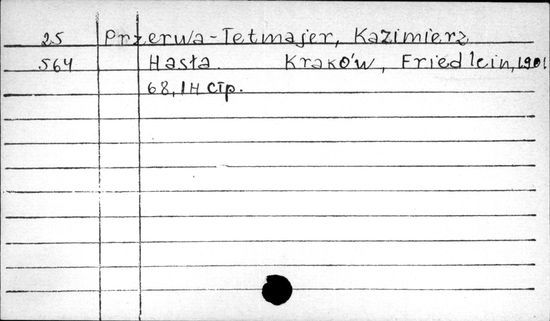 25 Przerwa-Tetmajer, Kazimierz
564 Hasła. Kraków, Friedlein, 1901
68, 1н стр.